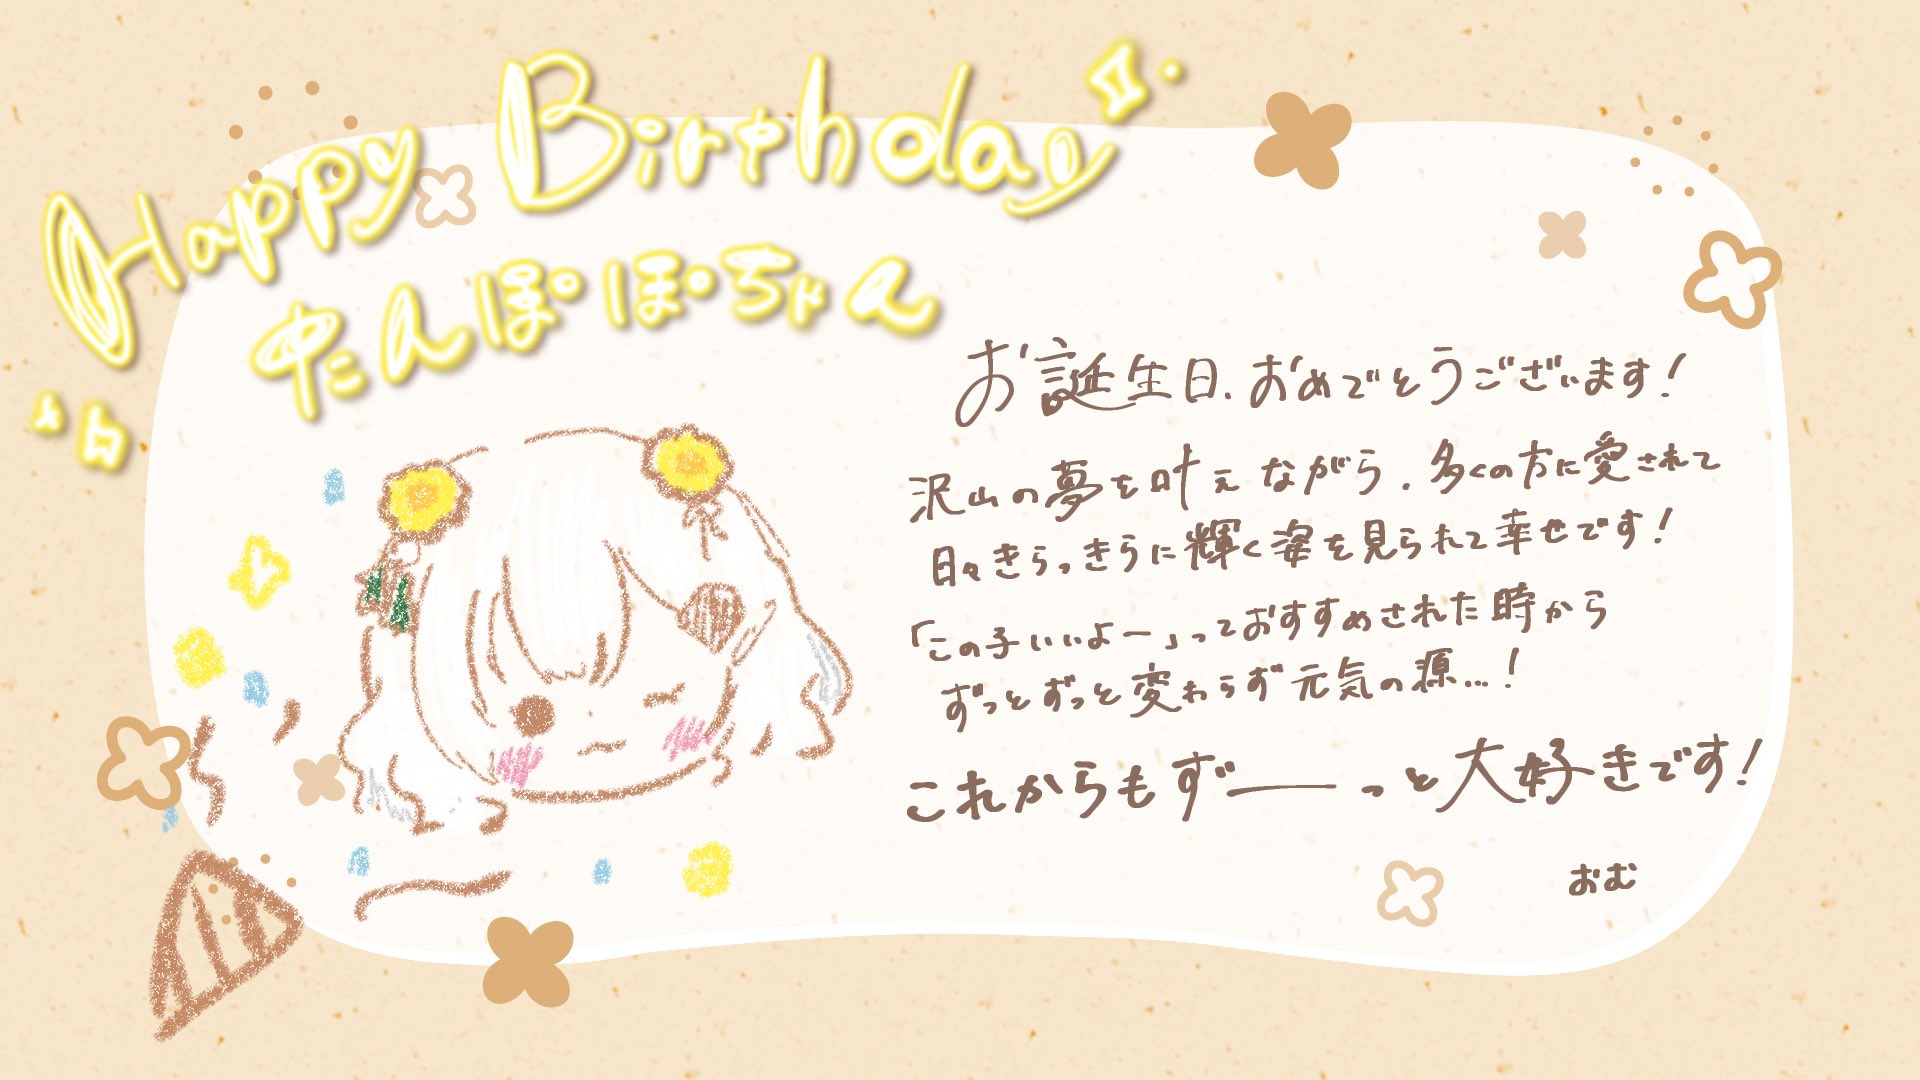 Happy Birthday
たんぽぽちゃん
お誕生日、おめでとうございます!
沢山の夢を叶えながら、多くの方に愛されて
日々きらっきらに輝く姿を見られて幸せです!
「この子いいよー」っておすすめされた時から
ずっとずっと変わらず元気の源…!
これからもずーーっと大好きです!
おむ